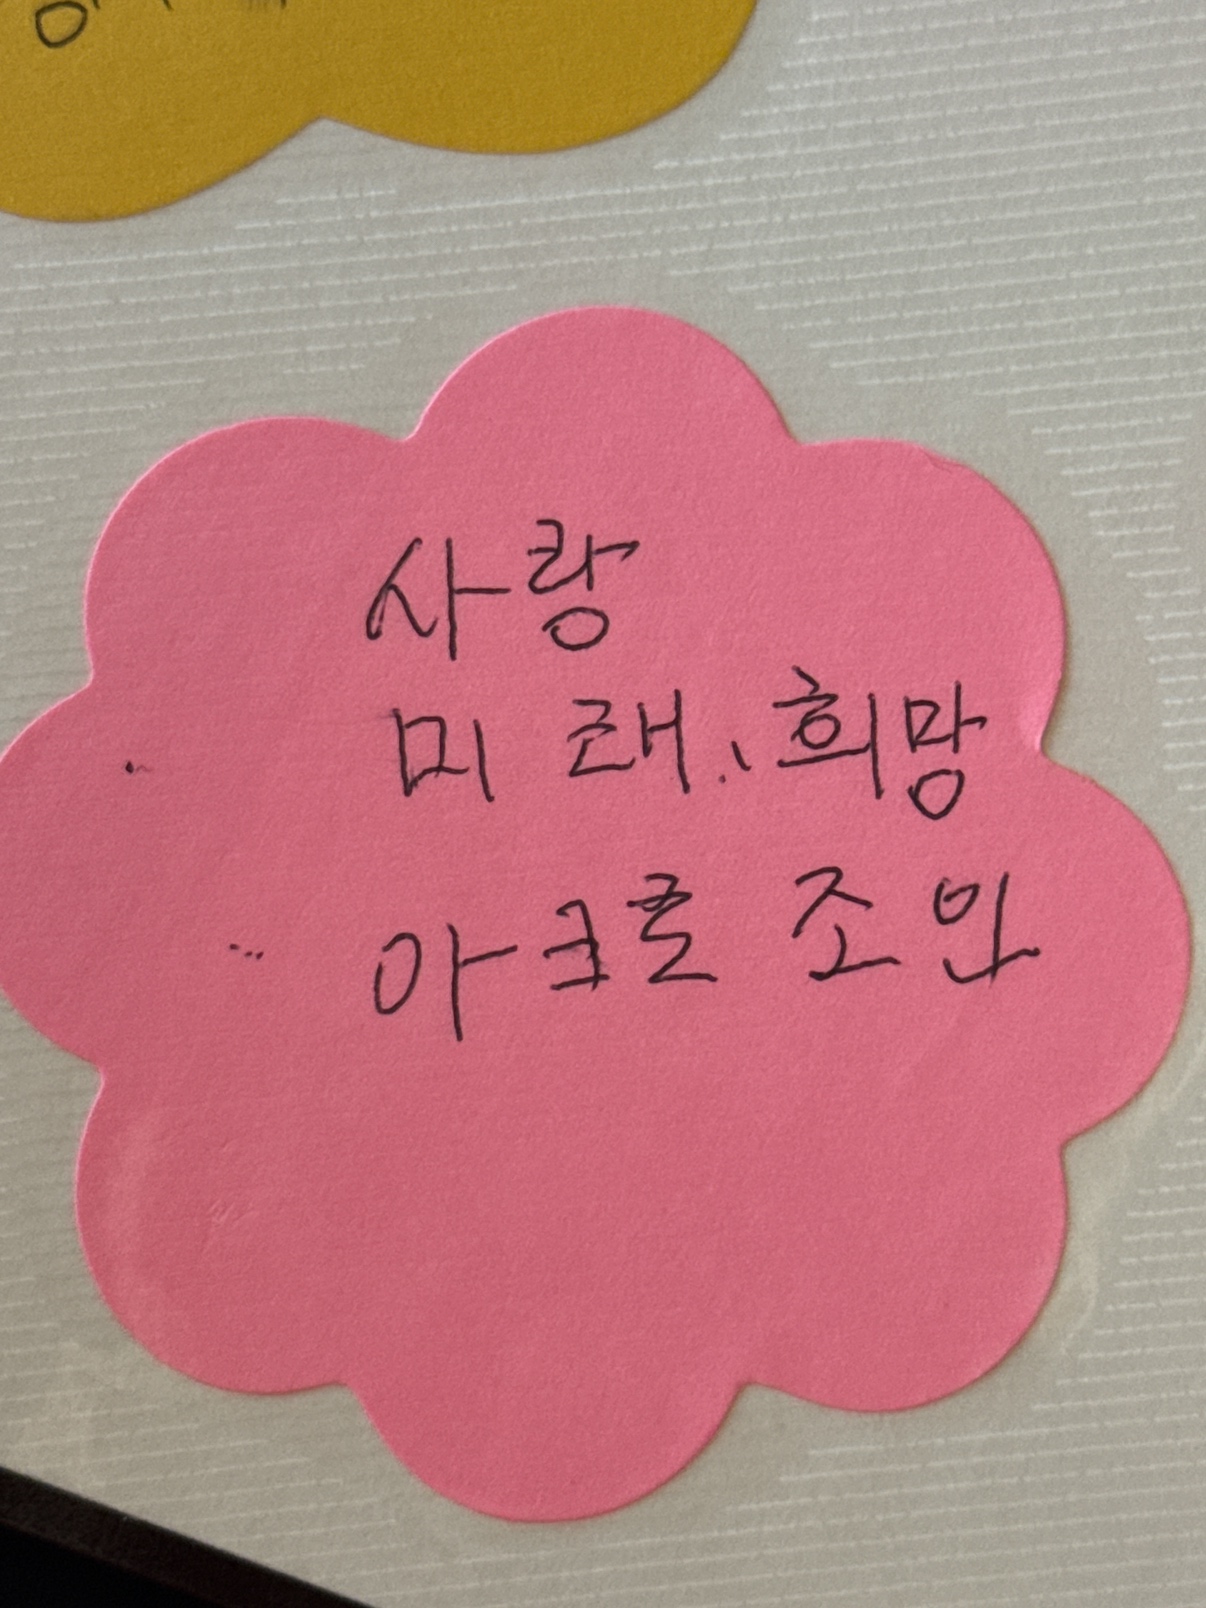 사랑
미래, 희망
아크로 조인